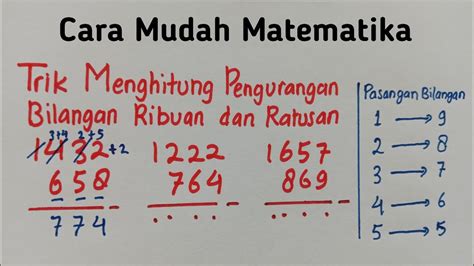 Cara Mudah Matematika
Trik Menghitung Pengurangan
Bilangan Ribuan dan Ratusan
3+4 2+5
1432+2 1222 1657
658 764 869
774 .... ....
Pasangan Bilangan
1 → 9
2 → 8
3 → 7
4 → 6
5 → 5